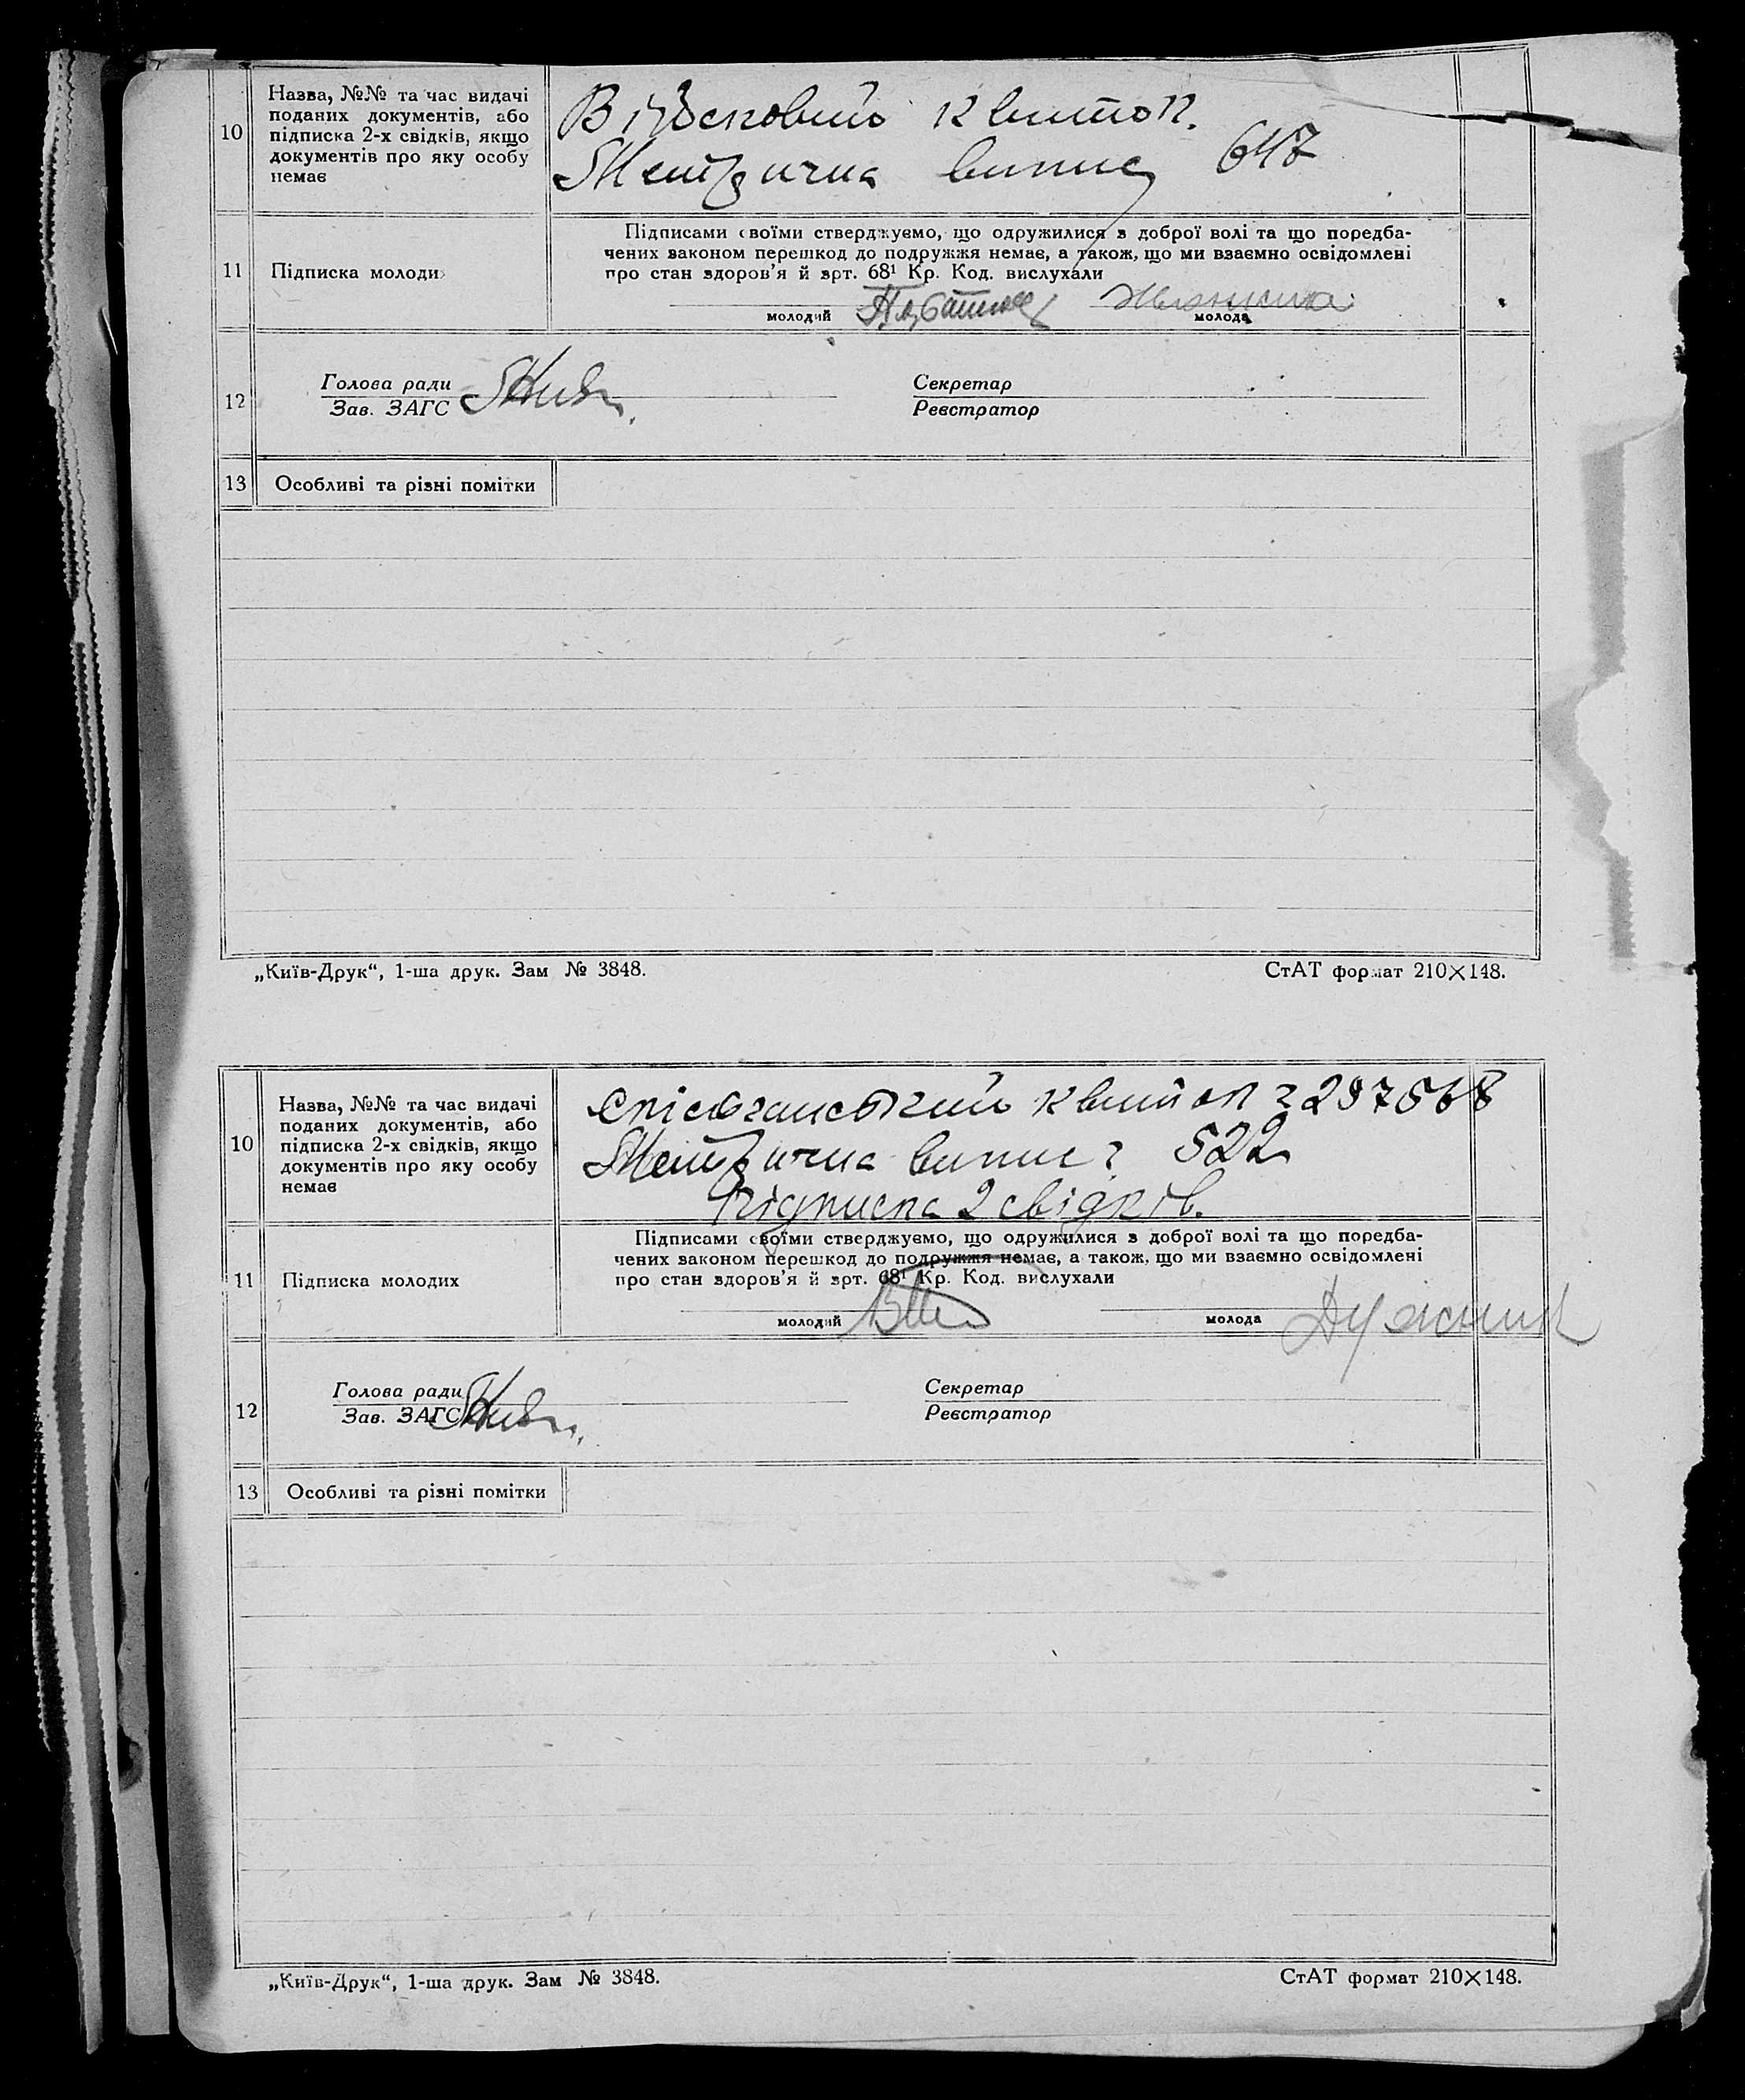 10
Назва, №№ та час видачі
поданих документів, або
підписка 2-х свідків, якщо
документів про яку особу
немає
Військовий квиток.
Метрична випис 647
11
Підписка молоди
Підписами своїми стверджуємо, що одружилися з доброї волі та що поредба-
чених законом перешкод до подружжя немає, а також, що ми взаємно освідомлені
про стан здоров'я й арт. 68¹ Кр. Код. вислухали
молодий
молода
12
Голова ради
Зав. ЗАГС
Секретар
Реєстратор
13
Особливі та різні помітки
„Київ-Друк“, 1-ша друк. Зам № 3848.
СтАТ формат 210×148.
10
Назва, №№ та час видачі
поданих документів, або
підписка 2-х свідків, якщо
документів про яку особу
немає
квиток 297568
Метрична випис 522
Підписка 2 свідків.
11
Підписка молодих
Підписами своїми стверджуємо, що одружилися з доброї волі та що поредба-
чених законом перешкод до подружжя немає, а також, що ми взаємно освідомлені
про стан здоров'я й арт. 68¹ Кр. Код. вислухали
молодий
молода
12
Голова ради
Зав. ЗАГС
Секретар
Реєстратор
13
Особливі та різні помітки
„Київ-Друк“, 1-ша друк. Зам № 3848.
СтАТ формат 210×148.